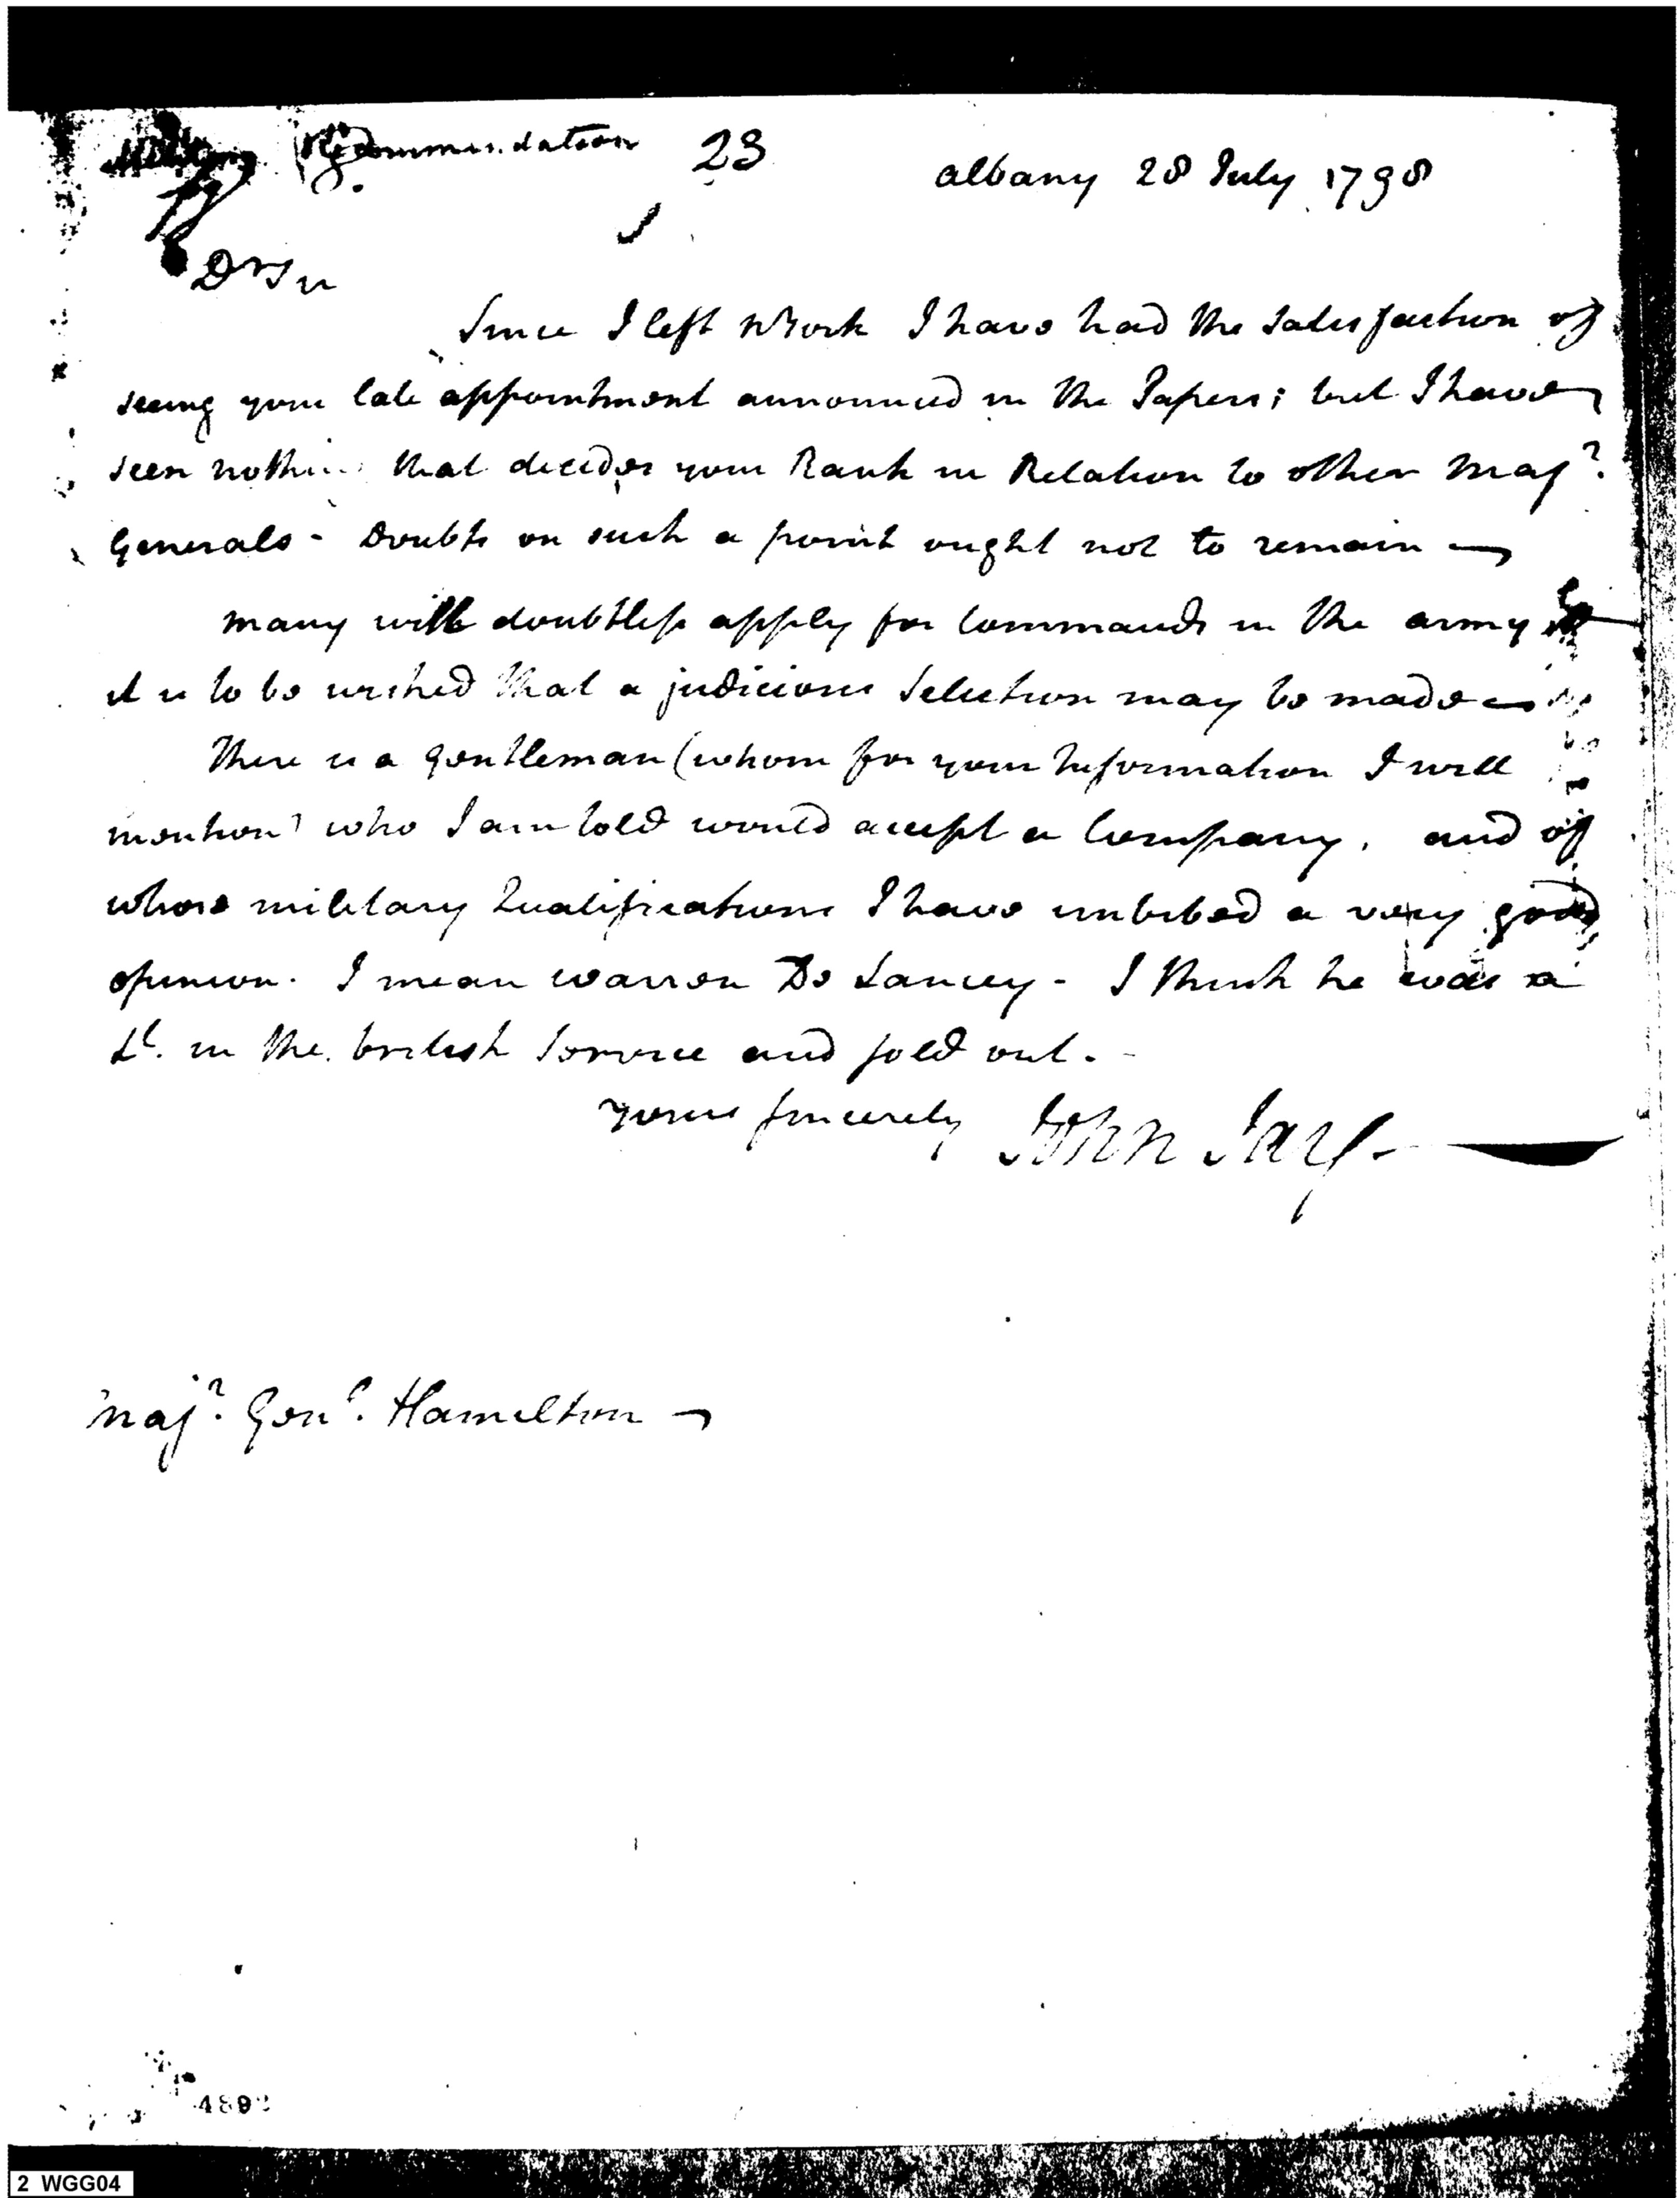 Recommendation 23
albany 28 July 1798
Dr Sir
Since I left NYork I have had the Satisfaction of
seeing your late appointment announced in the Papers; but I have
seen nothing that decides your Rank in Relation to other Majr.
Generals - Doubts on such a point ought not to remain —
many will doubtless apply for Commands in the army
it is to be wished that a judicious Selection may be made —
There is a Gentleman (whom for your Information I will
mention) who I am told would accept a Company, and of
whose military Qualifications I have imbibed a very good
opinion. I mean Warren De Lancey - I think he was a
Lt. in the british Service and sold out. -
yours sincerely John Jay. —
Majr. Genl. Hamilton —
2 WGG04